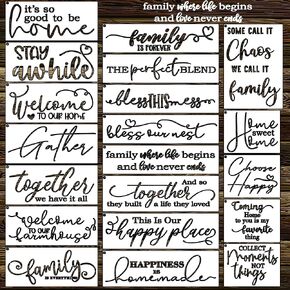 it's so
good to be
home
STAY
awhile
Welcome
TO OUR HOME
Gather
together
we have it all
Welcome
TO OUR
farmhouse
family
IS EVERYTHING
family where life begins
and love never ends
family
IS FOREVER
THE perfect BLEND
bless THIS mess
bless our nest
family where life begins
and love never ends
And so
together
they built a life they loved
This Is Our
happy place
HAPPINESS
is
homemade
SOME CALL IT
Chaos
WE CALL IT
family
Home
sweet
Home
Choose
Happy
Coming
Home to
you is my
favorite
thing
COLLECT
Moments
NOT
THINGS